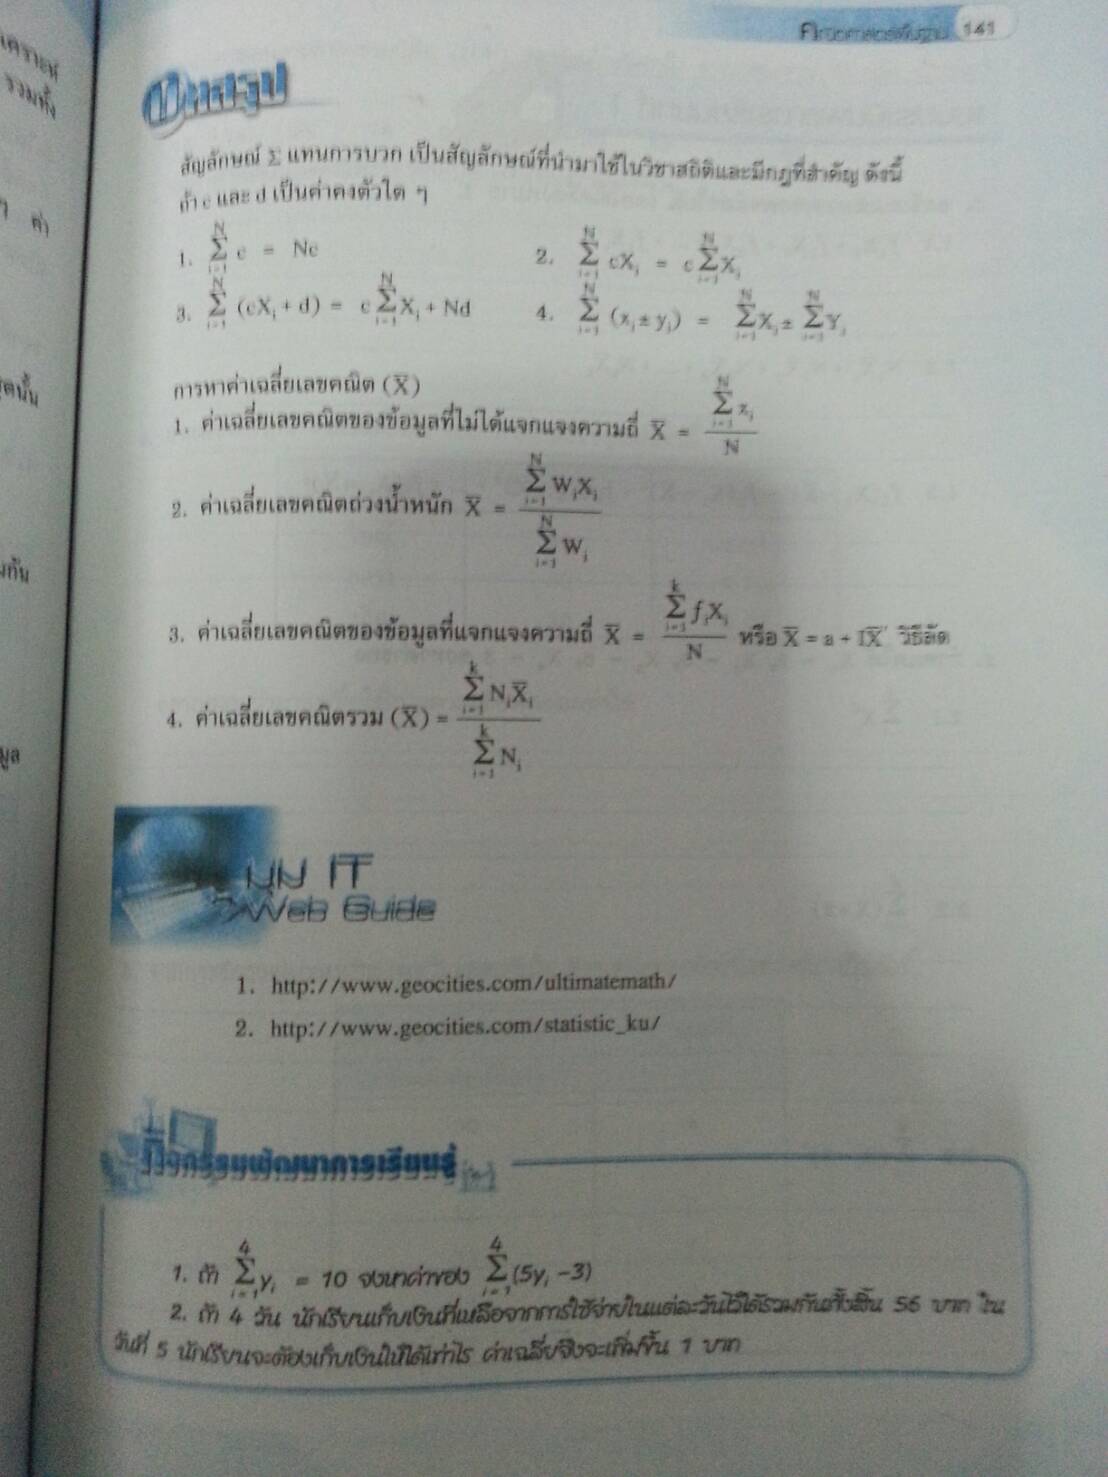 คณิตศาสตร์พื้นฐาน 141
เคราะห์
รวมทั้ง
ค่า
บทสรุป
สัญลักษณ์ Σ แทนการบวก เป็นสัญลักษณ์ที่นำมาใช้ในวิชาสถิติและมีกฎที่สำคัญ ดังนี้
ถ้า c และ d เป็นค่าคงตัวใด ๆ
1. \sum_{i=1}^{N} c = Nc 2. \sum_{i=1}^{N} cX_i = c\sum_{i=1}^{N} X_i
3. \sum_{i=1}^{N} (cX_i + d) = c\sum_{i=1}^{N} X_i + Nd 4. \sum_{i=1}^{N} (x_i ± y_i) = \sum_{i=1}^{N} X_i ± \sum_{i=1}^{N} Y_i
การหาค่าเฉลี่ยเลขคณิต (X̅)
1. ค่าเฉลี่ยเลขคณิตของข้อมูลที่ไม่ได้แจกแจงความถี่ X̅ = \frac{\sum_{i=1}^{N} x_i}{N}
2. ค่าเฉลี่ยเลขคณิตถ่วงน้ำหนัก X̅ = \frac{\sum_{i=1}^{N} W_iX_i}{\sum_{i=1}^{N} W_i}
3. ค่าเฉลี่ยเลขคณิตของข้อมูลที่แจกแจงความถี่ X̅ = \frac{\sum_{i=1}^{k} f_iX_i}{N} หรือ X̅ = a + IX̅' วิธีลัด
4. ค่าเฉลี่ยเลขคณิตรวม (X̅) = \frac{\sum_{i=1}^{k} N_iX̅_i}{\sum_{i=1}^{k} N_i}
มุม IT
Web Guide
1. http://www.geocities.com/ultimatemath/
2. http://www.geocities.com/statistic_ku/
กิจกรรมพัฒนาการเรียนรู้
1. ถ้า \sum_{i=1}^{4} y_i = 10 จงหาค่าของ \sum_{i=1}^{4} (5y_i -3)
2. ถ้า 4 วัน นักเรียนเก็บเงินที่เหลือจากการใช้จ่ายในแต่ละวันไว้ได้รวมกันทั้งสิ้น 56 บาท ใน
วันที่ 5 นักเรียนจะต้องเก็บเงินให้ได้เท่าไร ค่าเฉลี่ยจึงจะเพิ่มขึ้น 1 บาท